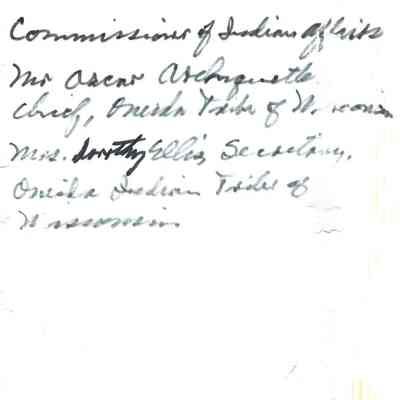 Commissioner of Indian Affairs
Mr Oscar Archiquette
Chief, Oneida Tribe of Wisconsin
Mrs. Dorothy Ellis, Secretary,
Oneida Indian Tribe of
Wisconsin